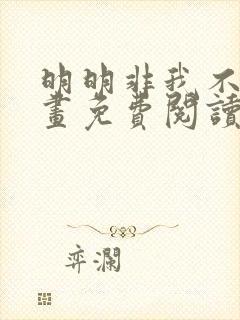 明明非我不
畫免費閱讀
弈瀾